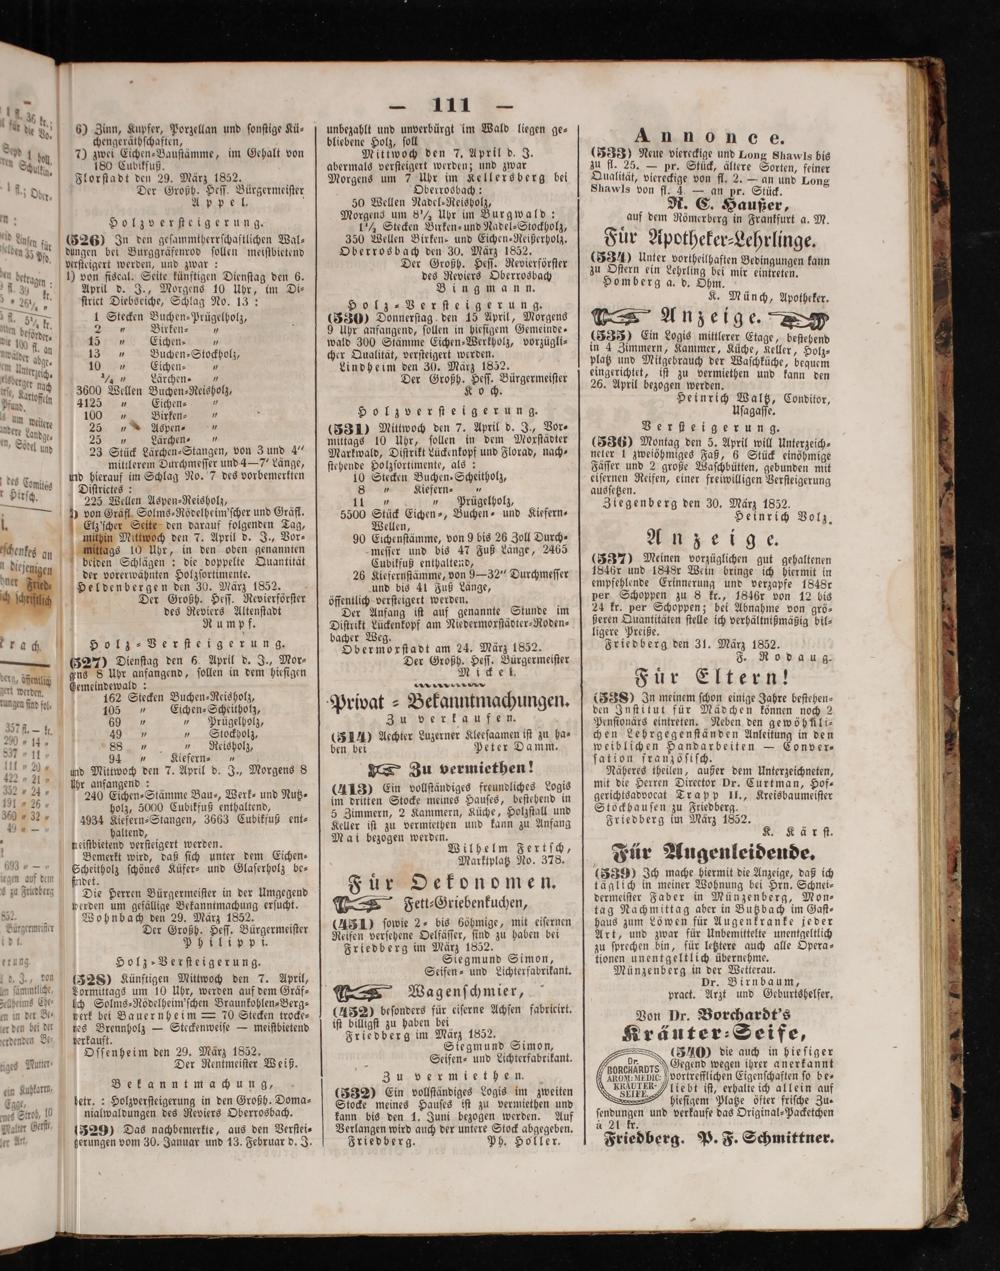 — 111 —
6) Zinn, Kupfer, Porzellan und sonstige Kü-
chengeräthschaften,
7) zwei Eichen-Baustämme, im Gehalt von
180 Cubikfuß.
Florstadt den 29. März 1852.
Der Großh. Hess. Bürgermeister
Appel.
Holzversteigerung.
(526) In den gesammtherrschaftlichen Wal-
dungen bei Burggräfenrod sollen meistbietend
versteigert werden, und zwar :
1) von fiscal. Seite künftigen Dienstag den 6.
April d. J., Morgens 10 Uhr, im Di-
strict Diebseiche, Schlag No. 13 :
1 Stecken Buchen-Prügelholz,
2 „ Birken- „
15 „ Eichen- „
13 „ Buchen-Stockholz,
10 „ Eichen- „
¾ „ Lärchen- „
3600 Wellen Buchen-Reisholz,
4125 „ Eichen- „
100 „ Birken- „
25 „ Aspen- „
25 „ Lärchen- „
23 Stück Lärchen-Stangen, von 3 und 4"
mittlerem Durchmesser und 4—7' Länge,
und hierauf im Schlag No. 7 des vorbemerkten
Districtes :
225 Wellen Aspen-Reisholz,
2) von Gräfl. Solms-Rödelheim'scher und Gräfl.
Elz'scher Seite den darauf folgenden Tag,
mithin Mittwoch den 7. April d. J., Vor-
mittags 10 Uhr, in den oben genannten
beiden Schlägen : die doppelte Quantität
der vorerwähnten Holzsortimente.
Heldenbergen den 30. März 1852.
Der Großh. Hess. Revierförster
des Reviers Altenstadt
Rumpf.
Holz-Versteigerung.
(527) Dienstag den 6. April d. J., Mor-
gens 8 Uhr anfangend, sollen in dem hiesigen
Gemeindewald :
162 Stecken Buchen-Reisholz,
105 „ Eichen-Scheitholz,
69 „ „ Prügelholz,
49 „ „ Stockholz,
88 „ „ Reisholz,
94 „ Kiefern- „
und Mittwoch den 7. April d. J., Morgens 8
Uhr anfangend :
240 Eichen-Stämme Bau-, Werk- und Nutz-
holz, 5000 Cubikfuß enthaltend,
4934 Kiefern-Stangen, 3663 Cubikfuß ent-
haltend,
meistbietend versteigert werden.
Bemerkt wird, daß sich unter dem Eichen-
Scheitholz schönes Küfer- und Glaserholz be-
findet.
Die Herren Bürgermeister in der Umgegend
werden um gefällige Bekanntmachung ersucht.
Wohnbach den 29. März 1852.
Der Großh. Hess. Bürgermeister
Philippi.
Holz-Versteigerung.
(528) Künftigen Mittwoch den 7. April,
Vormittags um 10 Uhr, werden auf dem Gräf-
lich Solms-Rödelheim'schen Braunkohlen-Berg-
werk bei Bauernheim = 70 Stecken trocke-
nes Brennholz — Steckenweise — meistbietend
verkauft.
Ossenheim den 29. März 1852.
Der Rentmeister Weiß.
Bekanntmachung,
betr. : Holzversteigerung in den Großh. Doma-
nialwaldungen des Reviers Oberrosbach.
(529) Das nachbemerkte, aus den Verstei-
gerungen vom 30. Januar und 13. Februar d. J.
unbezahlt und unverbürgt im Wald liegen ge-
bliebene Holz, soll
Mittwoch den 7. April d. J.
abermals versteigert werden; und zwar
Morgens um 7 Uhr im Kellersberg bei
Oberrosbach :
50 Wellen Nadel-Reisholz,
Morgens um 8½ Uhr im Burgwald :
1½ Stecken Birken- und Nadel-Stockholz,
350 Wellen Birken- und Eichen-Reißerholz.
Oberrosbach den 30. März 1852.
Der Großh. Hess. Revierförster
des Reviers Oberrosbach
Bingmann.
Holz-Versteigerung.
(530) Donnerstag den 15 April, Morgens
9 Uhr anfangend, sollen in hiesigem Gemeinde-
wald 300 Stämme Eichen-Werkholz, vorzügli-
cher Qualität, versteigert werden.
Lindheim den 30. März 1852.
Der Großh. Hess. Bürgermeister
Koch.
Holzversteigerung.
(531) Mittwoch den 7. April d. J., Vor-
mittags 10 Uhr, sollen in dem Morstädter
Markwald, Distrikt Lückenkopf und Florad, nach-
stehende Holzsortimente, als :
10 Stecken Buchen-Scheitholz,
8 „ Kiefern- „
11 „ „ Prügelholz,
5500 Stück Eichen-, Buchen- und Kiefern-
Wellen,
90 Eichenstämme, von 9 bis 26 Zoll Durch-
messer und bis 47 Fuß Länge, 2465
Cubikfuß enthaltend,
26 Kiefernstämme, von 9—32" Durchmesser
und bis 41 Fuß Länge,
öffentlich versteigert werden.
Der Anfang ist auf genannte Stunde im
Distrikt Lückenkopf am Niedermorstädter-Roden-
bacher Weg.
Obermorstadt am 24. März 1852.
Der Großh. Hess. Bürgermeister
Mickel.
Privat-Bekanntmachungen.
Zu verkaufen.
(514) Aechter Luzerner Kleesaamen ist zu ha-
ben bei Peter Damm.
Zu vermiethen!
(413) Ein vollständiges freundliches Logis
im dritten Stocke meines Hauses, bestehend in
5 Zimmern, 2 Kammern, Küche, Holzstall und
Keller ist zu vermiethen und kann zu Anfang
Mai bezogen werden.
Wilhelm Fertsch,
Marktplatz No. 378.
Für Oekonomen.
Fett-Griebenkuchen,
(451) sowie 2- bis 6öhmige, mit eisernen
Reifen versehene Oelfässer, sind zu haben bei
Friedberg im März 1852.
Siegmund Simon,
Seifen- und Lichterfabrikant.
Wagenschmier,
(452) besonders für eiserne Achsen fabricirt,
ist billigst zu haben bei
Friedberg im März 1852.
Siegmund Simon,
Seifen- und Lichterfabrikant.
Zu vermiethen.
(532) Ein vollständiges Logis im zweiten
Stocke meines Hauses ist zu vermiethen und
kann bis den 1. Juni bezogen werden. Auf
Verlangen wird auch der untere Stock abgegeben.
Friedberg. Ph. Holler.
Annonce.
(533) Neue viereckige und Long Shawls bis
zu fl. 25. — pr. Stück, ältere Sorten, feiner
Qualität, viereckige von fl. 2. — an und Long
Shawls von fl. 4 — an pr. Stück.
R. E. Haußer,
auf dem Römerberg in Frankfurt a. M.
Für Apotheker-Lehrlinge.
(534) Unter vortheilhaften Bedingungen kann
zu Ostern ein Lehrling bei mir eintreten.
Homberg a. d. Ohm.
K. Münch, Apotheker.
Anzeige.
(535) Ein Logis mittlerer Etage, bestehend
in 4 Zimmern, Kammer, Küche, Keller, Holz-
platz und Mitgebrauch der Waschküche, bequem
eingerichtet, ist zu vermiethen und kann den
26. April bezogen werden.
Heinrich Waltz, Conditor,
Usagasse.
Versteigerung.
(536) Montag den 5. April will Unterzeich-
neter 1 zweiöhmiges Faß, 6 Stück einöhmige
Fässer und 2 große Waschbütten, gebunden mit
eisernen Reifen, einer freiwilligen Versteigerung
aussetzen.
Ziegenberg den 30. März 1852.
Heinrich Volz.
Anzeige.
(537) Meinen vorzüglichen gut gehaltenen
1846r und 1848r Wein bringe ich hiermit in
empfehlende Erinnerung und verzapfe 1848r
per Schoppen zu 8 kr., 1846r von 12 bis
24 kr. per Schoppen; bei Abnahme von grö-
ßeren Quantitäten stelle ich verhältnißmäßig bil-
ligere Preiße.
Friedberg den 31. März 1852.
F. Rodaug.
Für Eltern!
(538) In meinem schon einige Jahre bestehen-
den Institut für Mädchen können noch 2
Pensionärs eintreten. Neben den gewöhnli-
chen Lehrgegenständen Anleitung in den
weiblichen Handarbeiten — Conver-
sation französisch.
Näheres theilen, außer dem Unterzeichneten,
mit die Herren Director Dr. Curtman, Hof-
gerichtsadvocat Trapp II., Kreisbaumeister
Stockhausen zu Friedberg.
Friedberg im März 1852.
K. Kärst.
Für Augenleidende.
(539) Ich mache hiermit die Anzeige, daß ich
täglich in meiner Wohnung bei Hrn. Schnei-
dermeister Faber in Münzenberg, Mon-
tag Nachmittag aber in Butzbach im Gast-
haus zum Löwen für Augenkranke jeder
Art, und zwar für Unbemittelte unentgeltlich
zu sprechen bin, für letztere auch alle Opera-
tionen unentgeltlich übernehme.
Münzenberg in der Wetterau.
Dr. Birnbaum,
pract. Arzt und Geburtshelfer.
Von Dr. Borchardt's
Kräuter-Seife,
Dr.
BORCHARDTS
AROM: MEDIC:
KRÄUTER-
SEIFE.
(540) die auch in hiesiger
Gegend wegen ihrer anerkannt
vortrefflichen Eigenschaften so be-
liebt ist, erhalte ich allein auf
hiesigem Platze öfter frische Zu-
sendungen und verkaufe das Original-Packetchen
à 21 kr.
Friedberg. P. F. Schmittner.